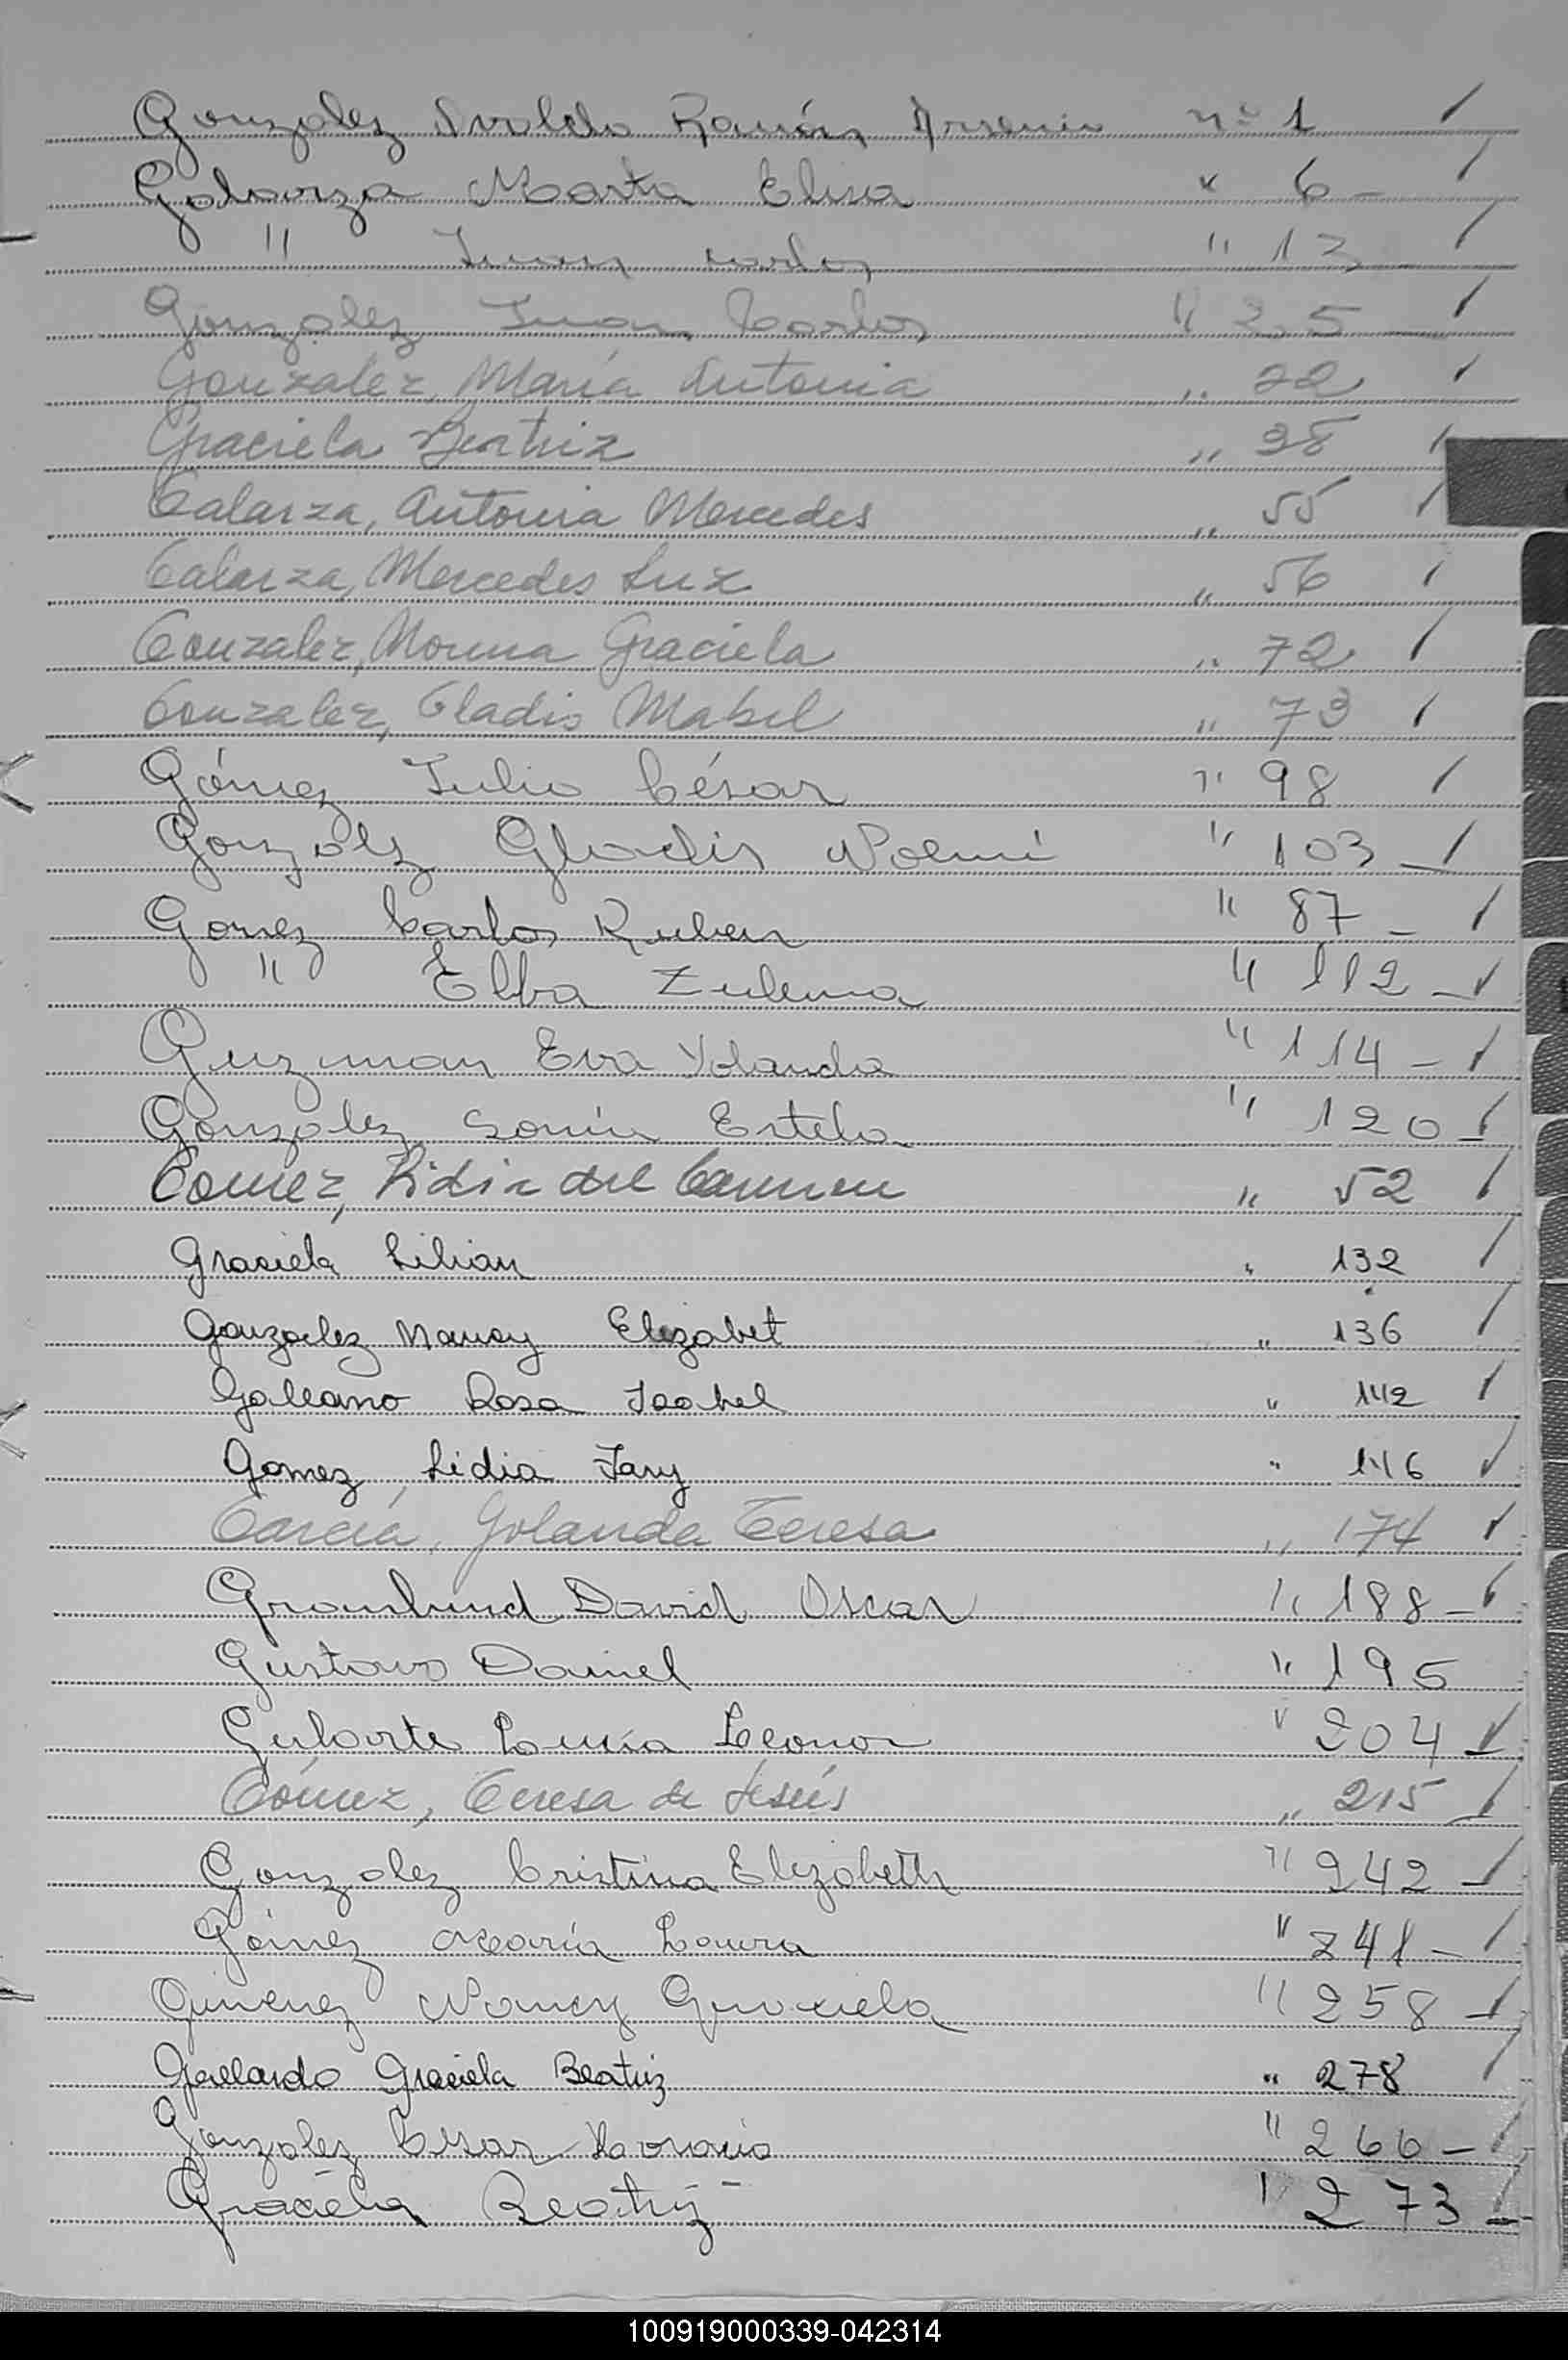 Gonzalez Ramón Arsenio nº 1
Galarza Marta Elisa " 6 -
" Juan Carlos " 13
Gonzalez Juan Carlos " 25 -
Gonzalez, María Antonia " 22
Graciela Beatriz " 38
Galarza, Antonia Mercedes " 55
Galarza, Mercedes Luz " 56
Gonzalez, Norma Graciela " 72
Gonzalez, Gladis Mabel " 73
Gómez Julio César " 98
Gonzalz Gladis Noemí " 103 -
Gomez Carlos Ruben " 87 -
" Elba Zulema " 112 -
Guzman Eva Yolanda " 114 -
Gonzalez Sonia Estela " 120 -
Gomez, Lidia del Carmen " 52
Graciela Lilian " 132
Gonzalez Nancy Elizabet " 136
Galeano Rosa Isabel " 142
Gomez, Lidia " 146
García, Yolanda Teresa " 174
Gronlund David Oscar " 188 -
Gustavo Daniel " 195
Gularte Lucía Leonor " 204 -
Gómez, Teresa de Jesús " 215 -
Gonzalez Cristina Elizabeth " 242 -
Gómez María Laura " 241 -
Gimenez Nancy Graciela " 258 -
Gallardo Graciela Beatriz " 278
Gonzalez Cesar Horacio " 260 -
Graciela Beatriz " 273 -
100919000339-042314